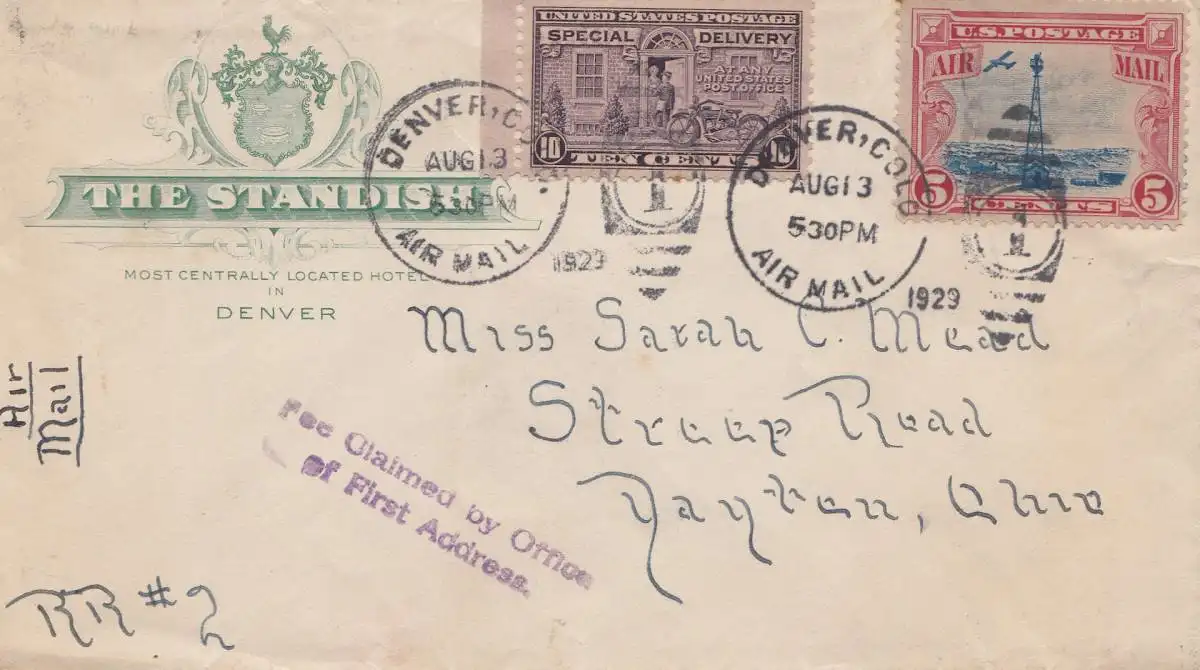 THE STANDISH
MOST CENTRALLY LOCATED HOTEL
IN
DENVER
UNITED STATES POSTAGE
SPECIAL DELIVERY
AT ANY
UNITED STATES
POST OFFICE
10 TEN CENTS 10
U.S. POSTAGE
AIR MAIL
5 CENTS 5
DENVER, COLO.
AUG 13
530PM
AIR MAIL
1929
1
DENVER, COLO.
AUG 13
530PM
AIR MAIL
1929
1
Miss Sarah C. Mead
Stroop Road
Dayton, Ohio
Air
Mail
Fee Claimed by Office
of First Address.
RR #2